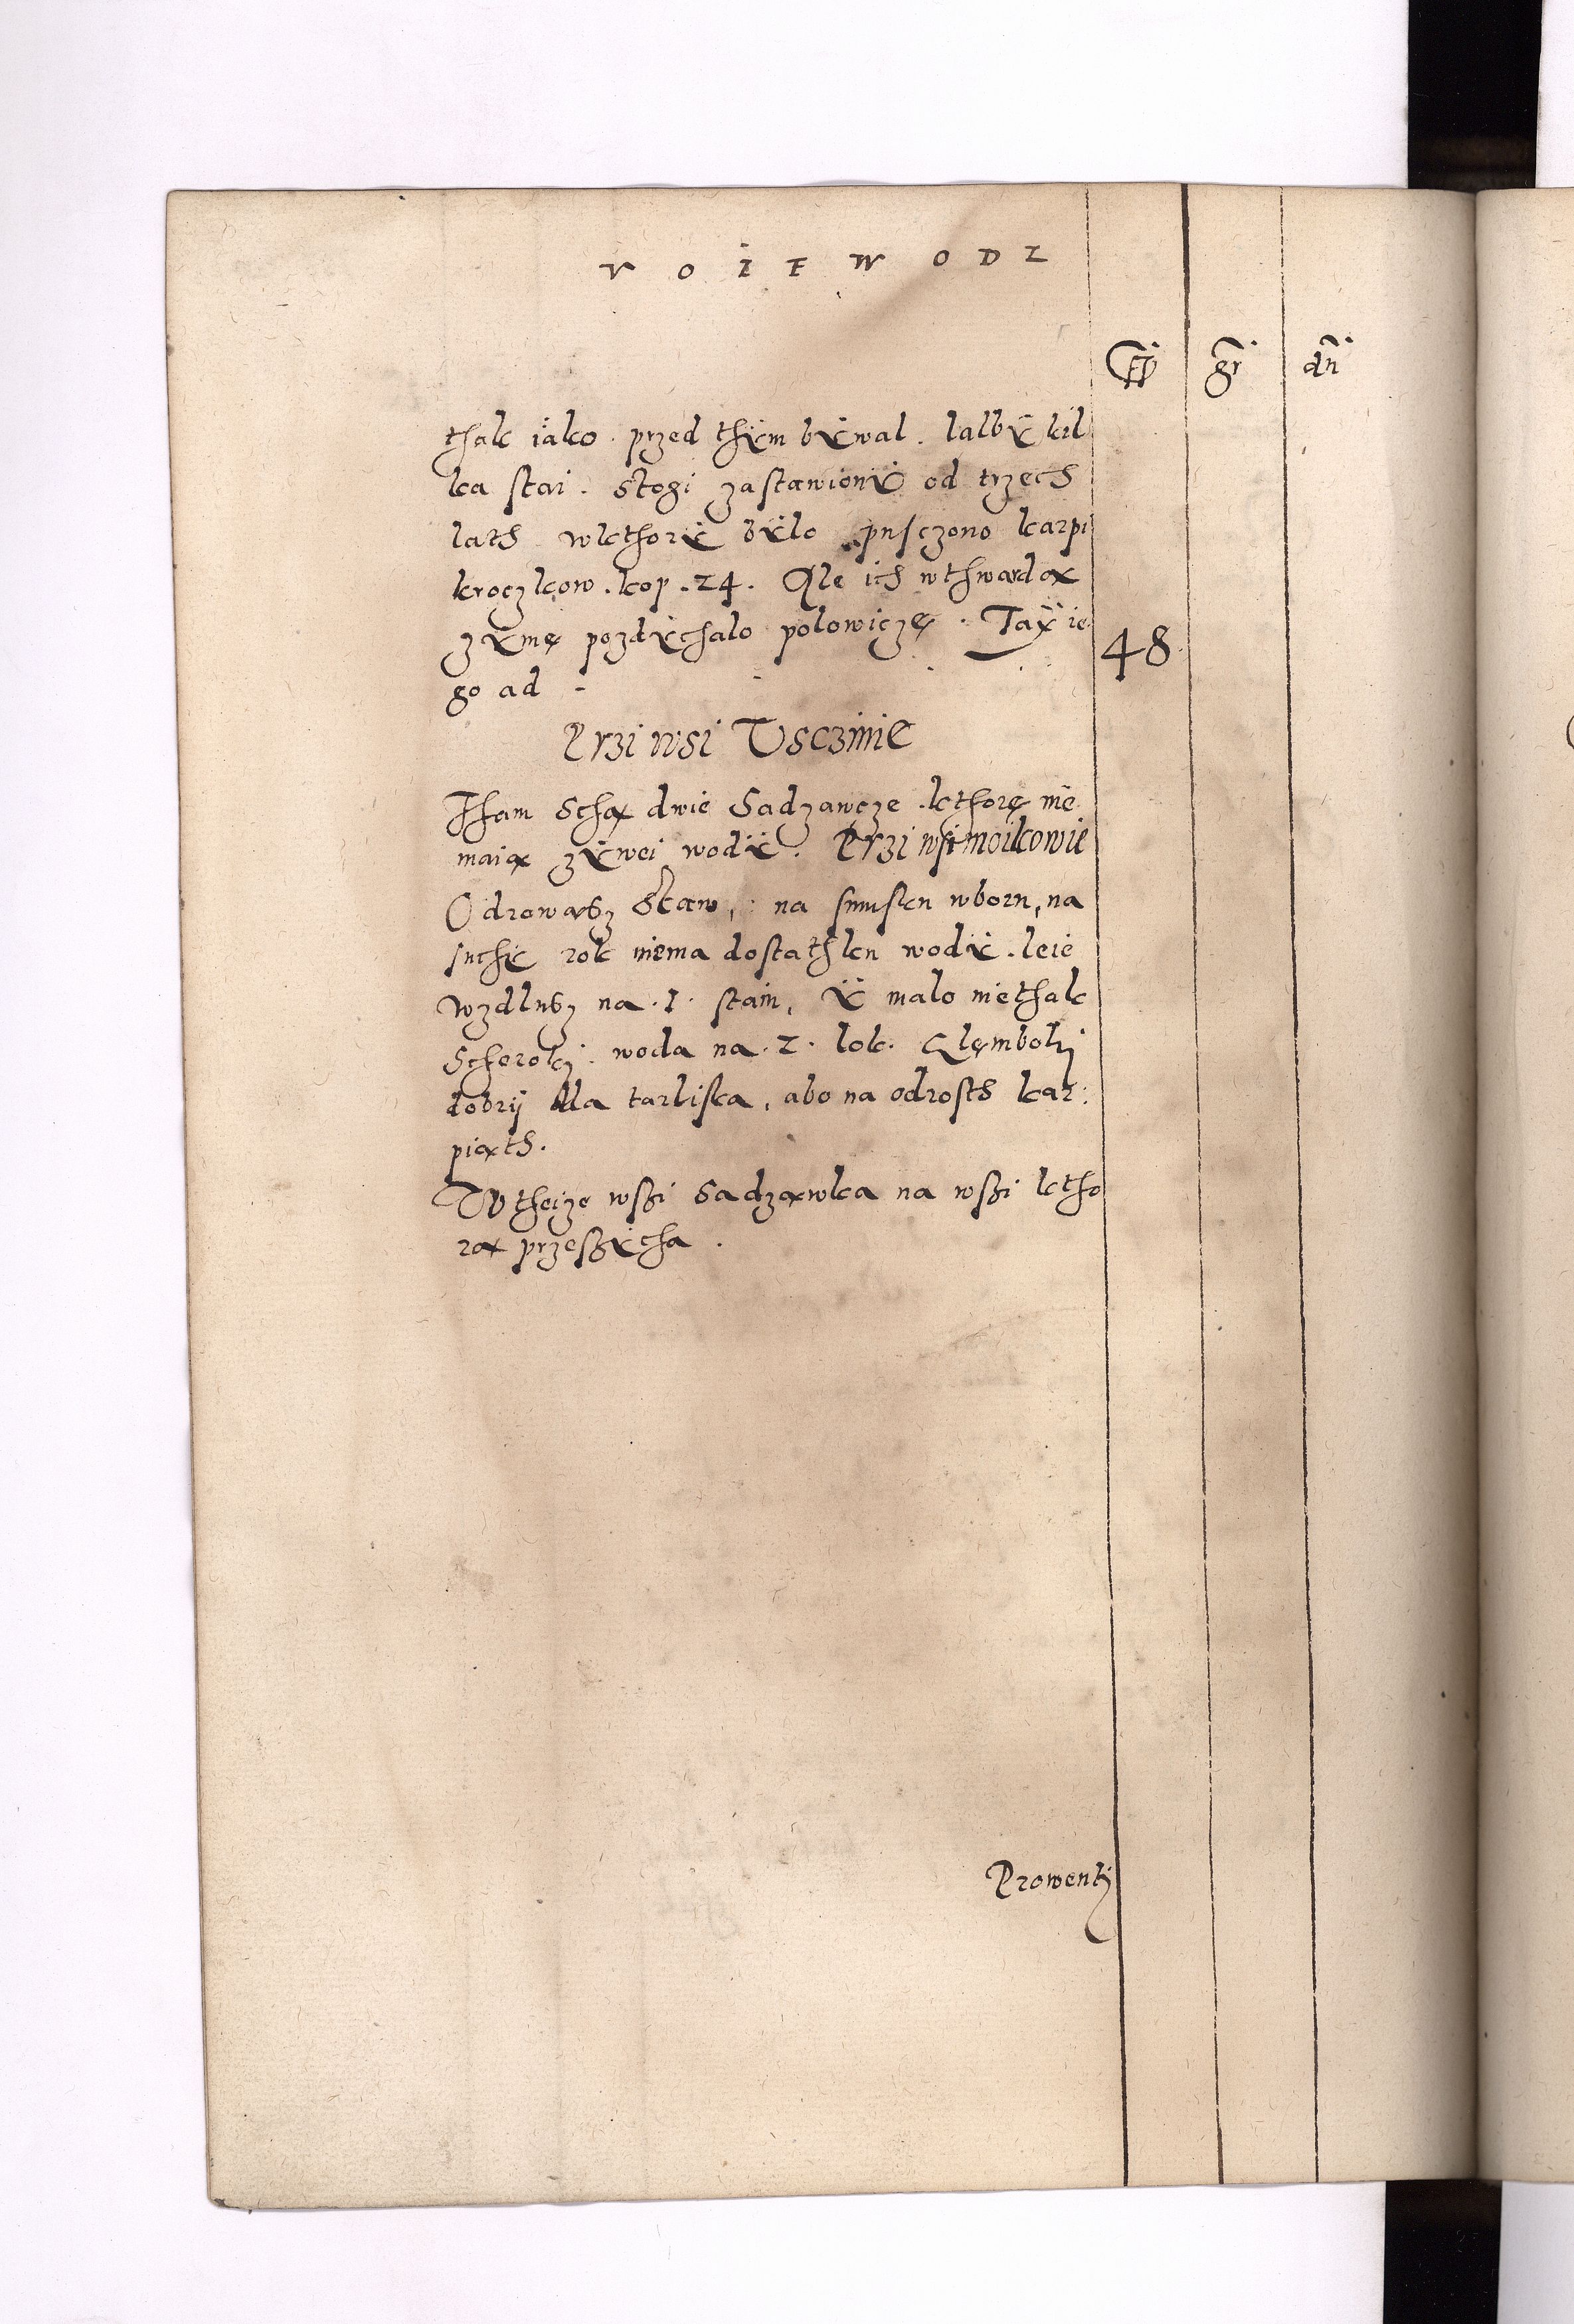 VOIEWODZ
gr dn
thak iako przed thÿm bÿwal. lalbÿ kil
ka stai. Stogi zastawionÿ od trzech
lath wkthorÿ bÿlo pusczono karpi
kroczkow. kop. 24. Ale ich wthwardą
zÿmę pozdÿchalo polowiczę. Tax ie
go ad - 48
Przi wsi Usczinie
Tham Schą dwie Sadzawcze kthorę nie
maią zÿwei wodÿ. Przi wsi moikowie
Odrowąsz Staw, na smusku wboru, na
suchÿ rok niema dostathku wodÿ. leie
wzdlusz na .1. staiu, ÿ malo niethak
Scheroki. woda na .2. lok. Glęmboki
dobrÿ dla tarliska, abo na odrosth kar:
piąth.
W theize wszi Sadzawka na wszi ktho
rą przeszÿcha.
Prowenti